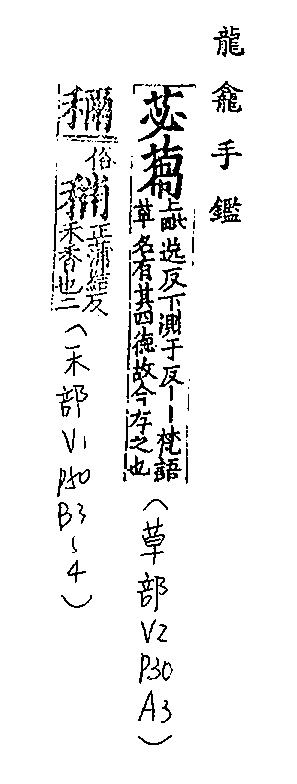 龍龕手鑑
苾蒭
上毗迭反下測于反——梵語
草名有其四德故今存之也
（草部V2 P30 A3）
俗
正蒲結反
禾香也二
（禾部V1 P50 B3~4）